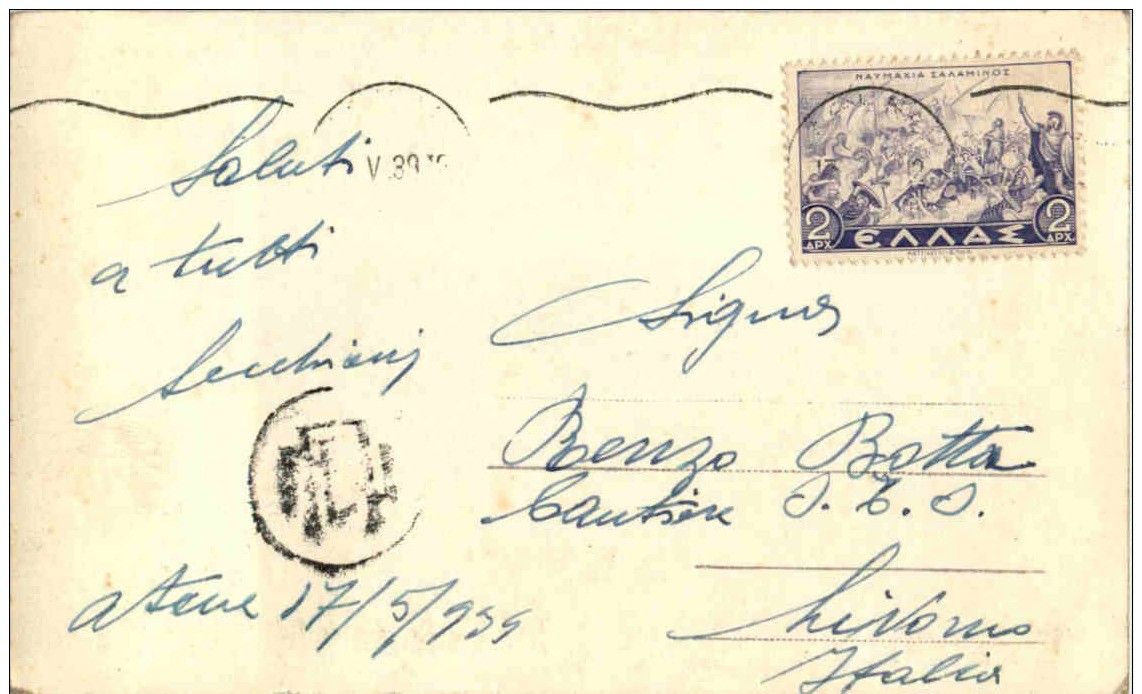 Saluti
a tutti
Atene 17/5/939
V.39
ΝΑΥΜΑΧΙΑ ΣΑΛΑΜΙΝΟΣ
2 ΔΡΧ ΕΛΛΑΣ 2 ΔΡΧ
Signor
Renzo Botta
Cantiere
Livorno
Italia